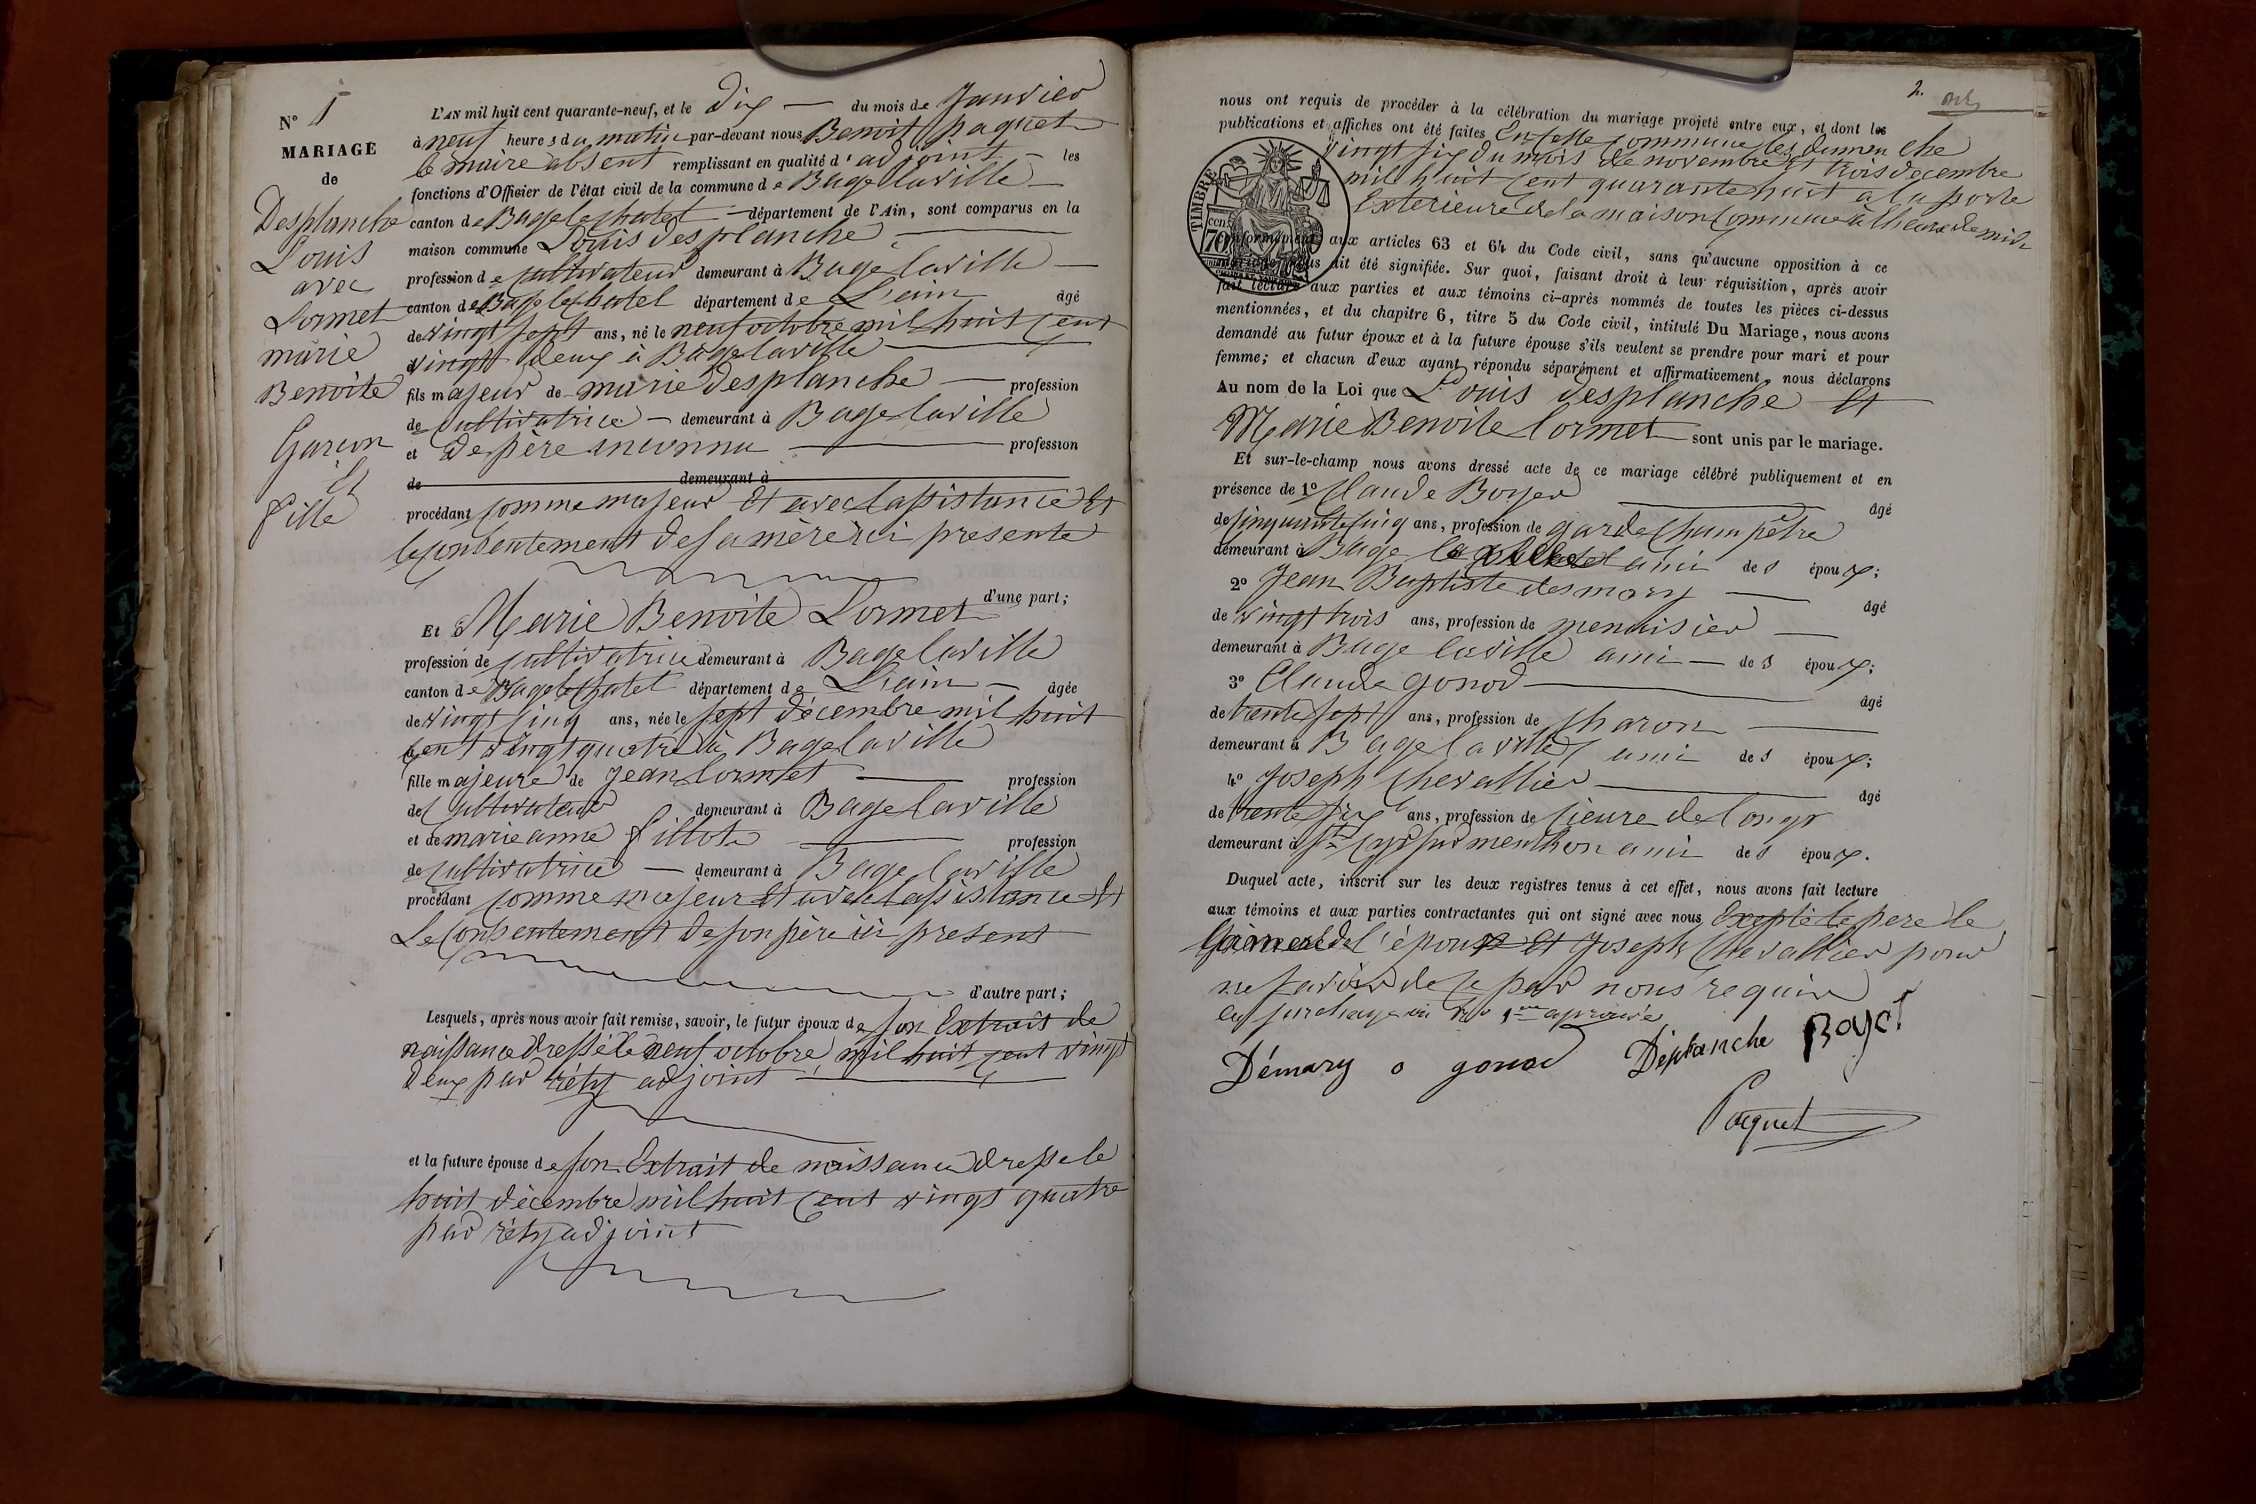 N° 1
MARIAGE
de
Desplanche
Louis
avec
Lormet
marie
Benoite
Garcon
Et
fille
L'AN mil huit cent quarante-neuf, et le Dix — du mois de Janvier
à neuf heures du matin par-devant nous Benoit paquet
le maire absent remplissant en qualité d'adjoint — les
fonctions d'Officier de l'état civil de la commune de Bagelaville —
canton de Bagelechatel — département de l'Ain, sont comparus en la
maison commune Louis desplanche —
profession de Cultivateur demeurant à Bagelaville —
canton de Bagelechatel département de L'ain âgé
de vingt sept ans, né le neuf octobre mil huit Cent
vingt deux à Bagelaville —
fils majeur de marie desplanche — profession
de Cultivatrice — demeurant à Bagelaville
et de père inconnu — profession
de demeurant à
procédant comme majeur Et avec lassistance Et
le Consentement de sa mère ici presente
d'une part;
Et Marie Benoite Lormet
profession de Cultivatrice demeurant à Bagelaville
canton de Bagelechatel département de L'ain — âgée
de vingt cinq ans, née le sept décembre mil huit
Cent vingt quatre à Bagelaville
fille majeure de Jean Lormet — profession
de Cultivateur demeurant à Bagelaville
et de marie anne fillot — profession
de Cultivatrice — demeurant à Bagelaville
procédant comme majeur Et avec lassistance Et
Le Consentement de son père ici present
d'autre part;
Lesquels, après nous avoir fait remise, savoir, le futur époux de son Extrait de
naissance dressé le neuf octobre mil huit cent vingt
deux par réty adjoint —
et la future épouse de son Extrait de naissance dresse le
huit décembre mil huit Cent vingt quatre
par réty adjoint
2.
nous ont requis de procéder à la célébration du mariage projeté entre eux, et dont les
publications et affiches ont été faites En cette Commune les dimenche
vingt six du mois de novembre Et trois decembre
mil huit Cent quarante huit a la porte
Exterieure de la maison Commune à lheure de midi
TIMBRE
70
conformément aux articles 63 et 64 du Code civil, sans qu'aucune opposition à ce
mariage nous ait été signifiée. Sur quoi, faisant droit à leur réquisition, après avoir
fait lecture aux parties et aux témoins ci-après nommés de toutes les pièces ci-dessus
mentionnées, et du chapitre 6, titre 5 du Code civil, intitulé Du Mariage, nous avons
demandé au futur époux et à la future épouse s'ils veulent se prendre pour mari et pour
femme; et chacun d'eux ayant répondu séparément et affirmativement, nous déclarons
Au nom de la Loi que Louis desplanche Et
Marie Benoite Lormet — sont unis par le mariage.
Et sur-le-champ nous avons dressé acte de ce mariage célébré publiquement et en
présence de 1° Claude Boyer — âgé
de Cinquante Cinq ans, profession de garde Champêtre
demeurant à Bage ami des époux;
2° Jean Baptiste desmary — âgé
de vingt trois ans, profession de menuisier —
demeurant à Bage laville ami — des époux;
3° Claude gonod — âgé
de trente sept ans, profession de Charon —
demeurant à Bagelaville ami des époux;
4° Joseph Chevallier — âgé
de trente six ans, profession de sieure de longs
demeurant à St Cyr sur menthon ami des époux.
Duquel acte, inscrit sur les deux registres tenus à cet effet, nous avons fait lecture
aux témoins et aux parties contractantes qui ont signé avec nous Excepté le pere
de l'époux Et Joseph Chevallier pour
ne savoir de ce par nous requis
Démary gonod Déplanche Boyer
Paquet